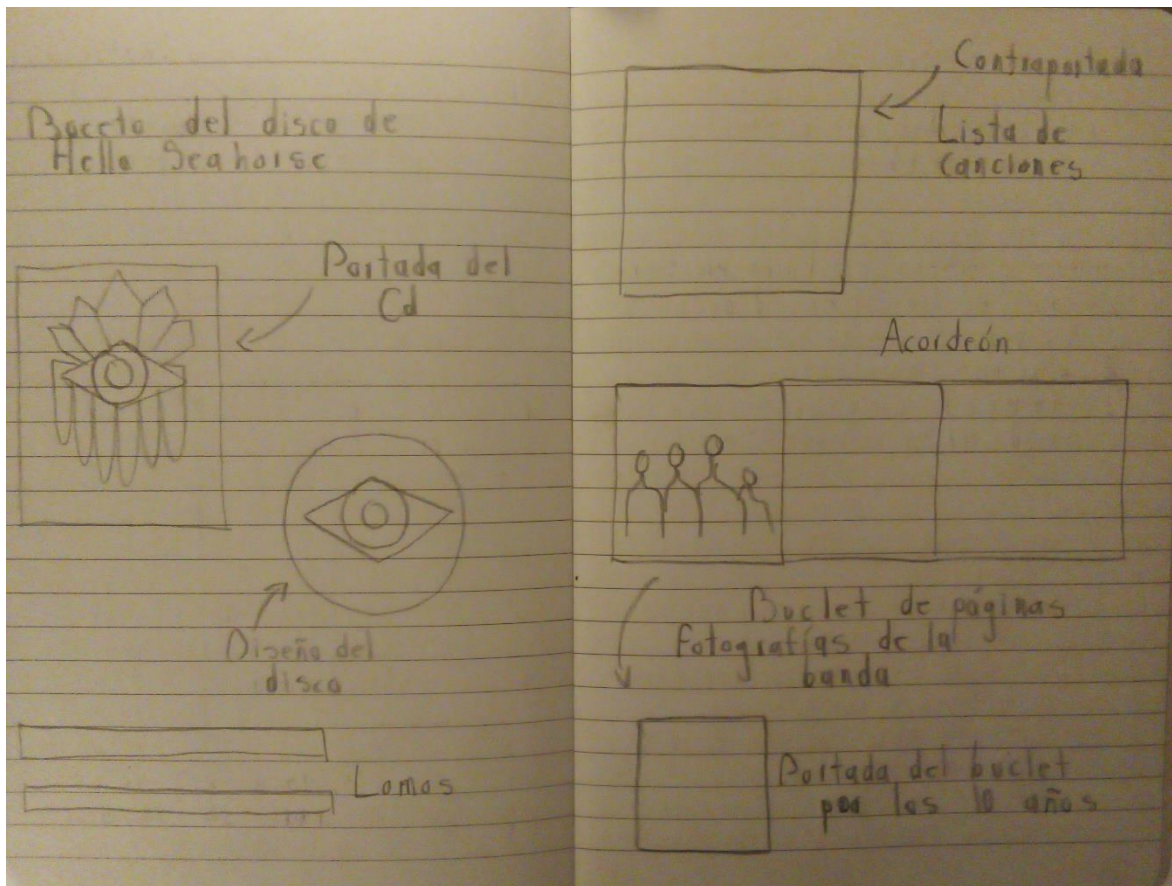 Boceto del disco de
Hello Seahorse
Portada del
Cd
Diseño del
disco
Lomos
Contraportada
Lista de
canciones
Acordeón
Buclet de páginas
Fotografías de la
banda
Portada del buclet
por los 10 años